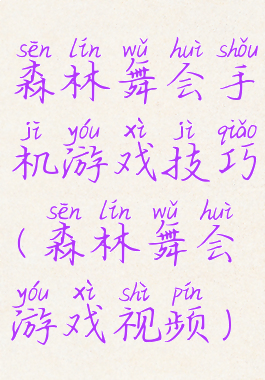 sēn lín wǔ huì shǒu
森林舞会手
jī yóu xì jì qiǎo
机游戏技巧
sēn lín wǔ huì
(森林舞会
yóu xì shì pín
游戏视频)